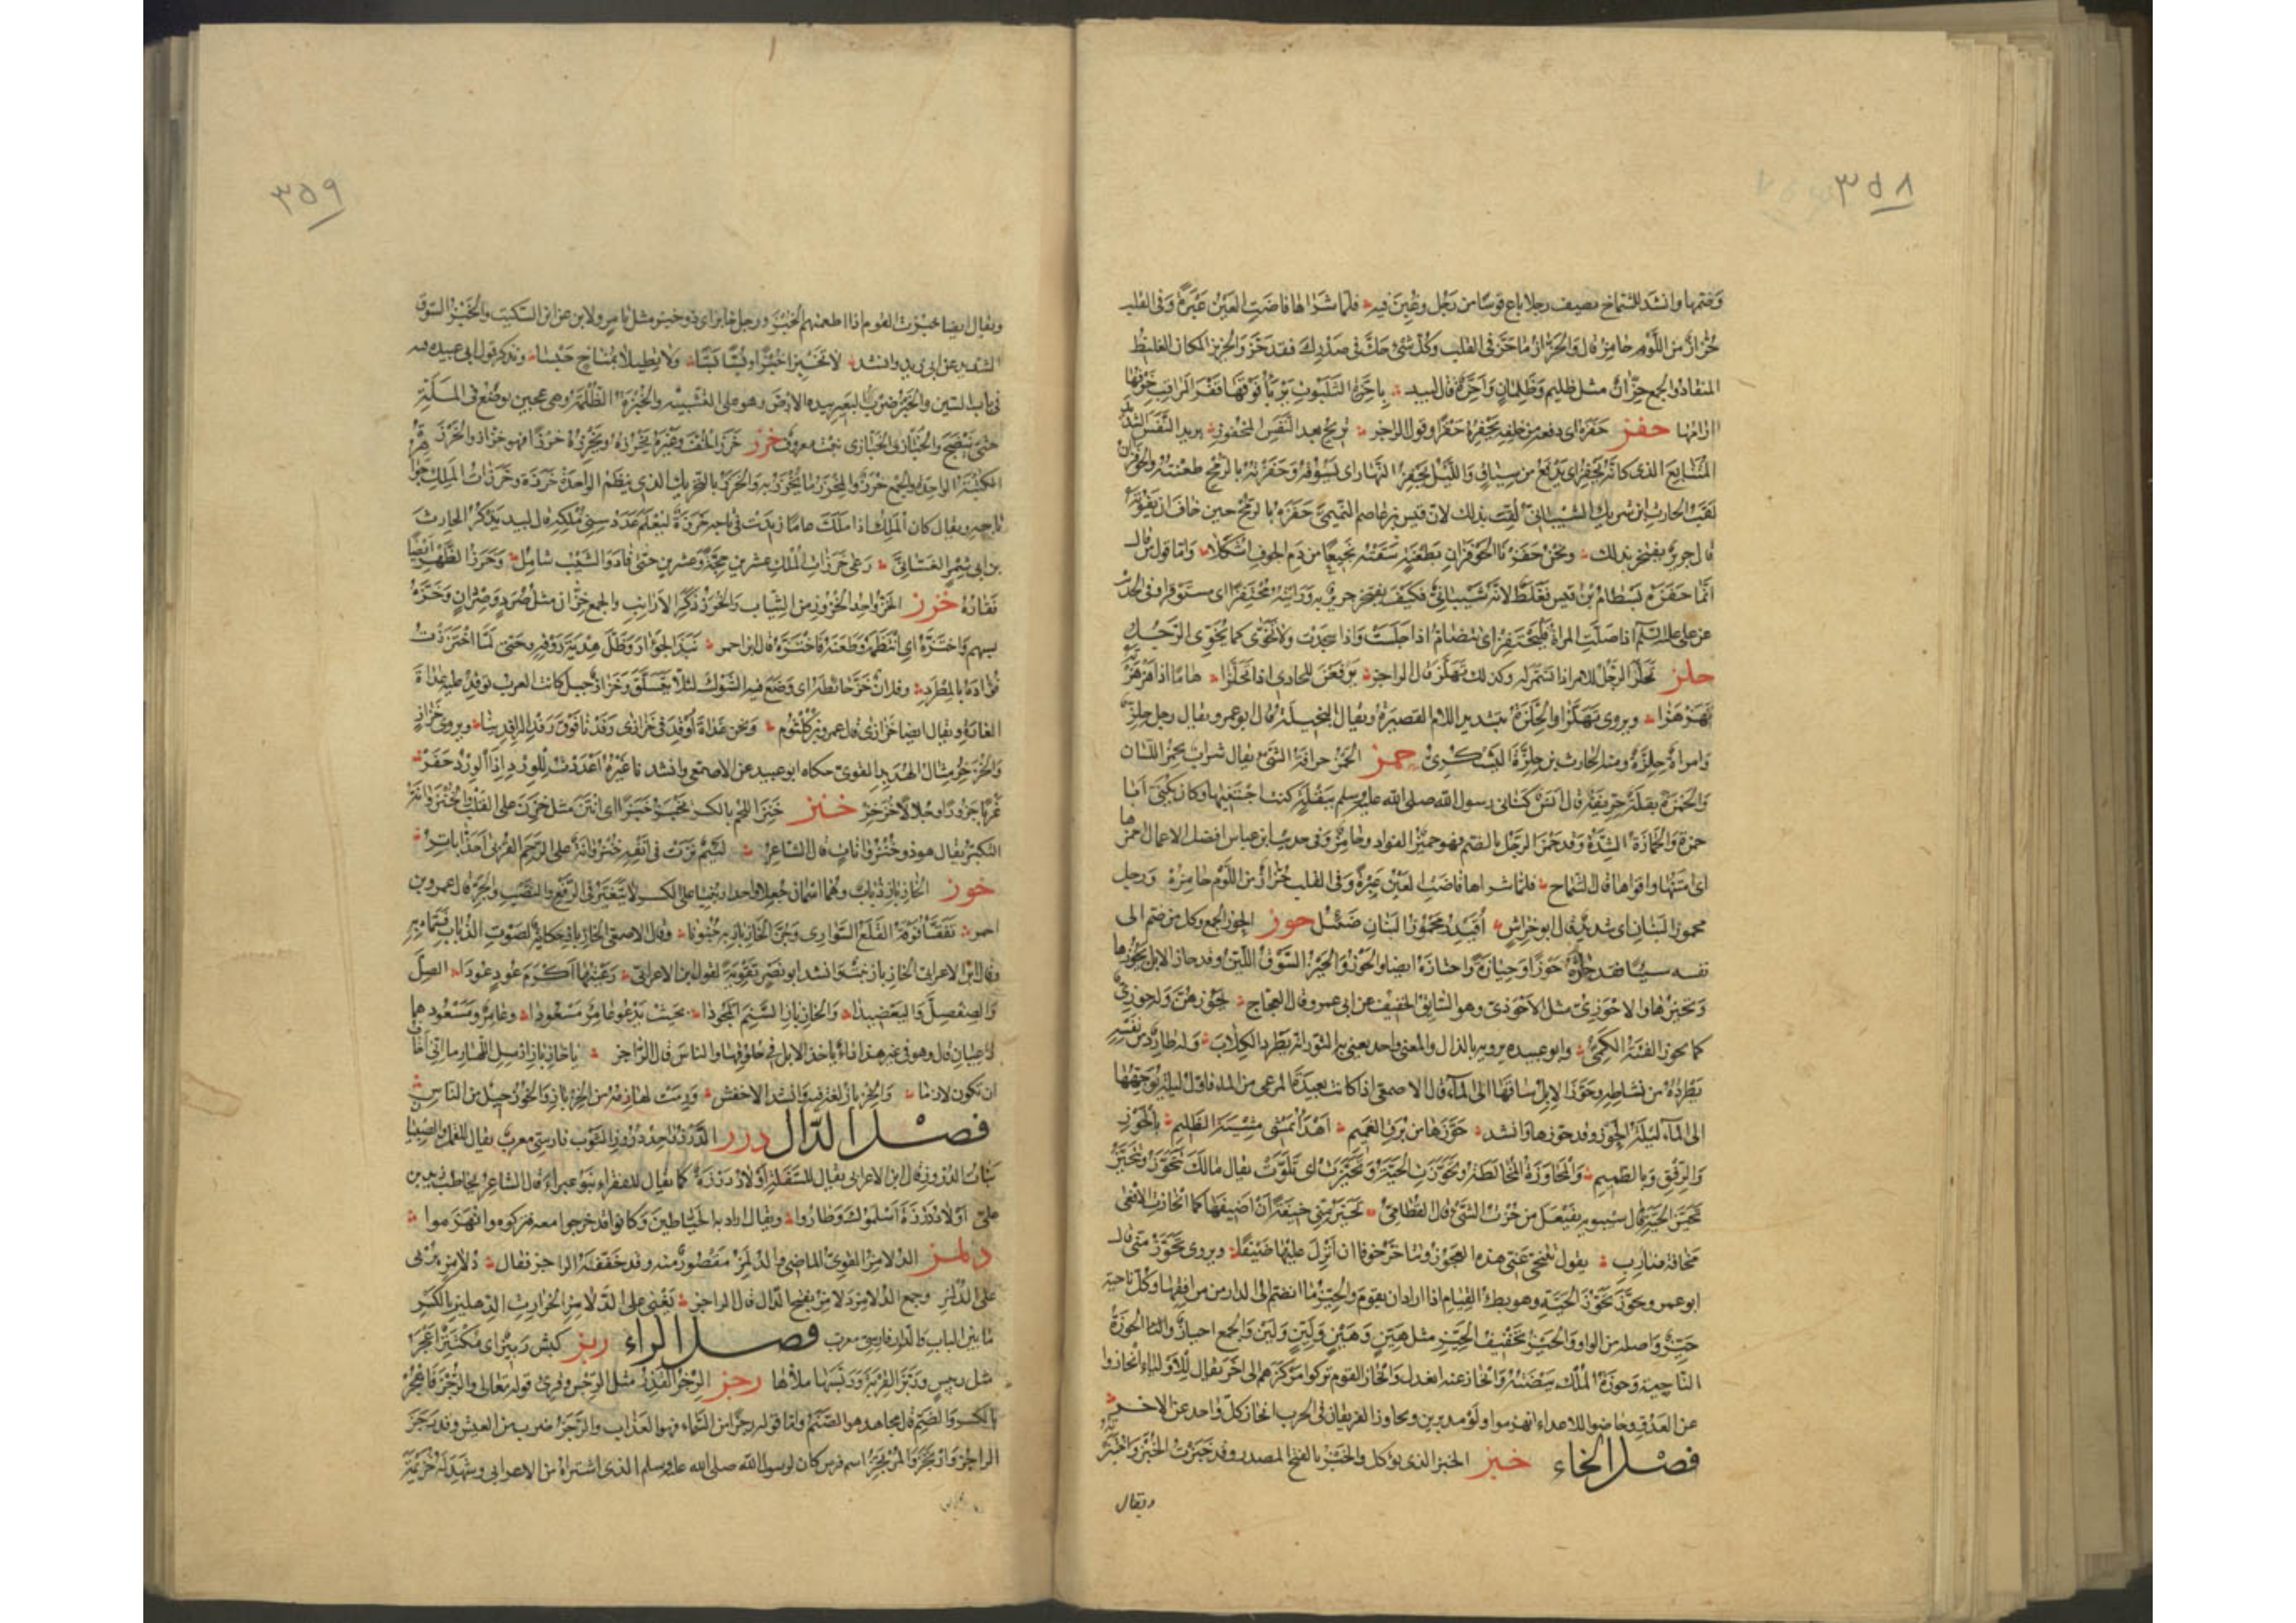 ٣٥٨
وفتحها وانشد للشماخ يصف رجلا باع قوسا من رجل وغبن فيه فلما شراها فاضت العين عبرة وفى القلب
حزاز من اللوم حامز قال والحزاز ما حز فى القلب وكل شئ حك فى صدرك فقد حز والحزيز المكان الغليظ
المنقاد والجمع حزان مثل ظليم وظلمان واحزة قال لبيد باحزة الثلبوت يربأ فوقها قفر المراقب خوفها
ارامها حفز حفزه اى دفعه من خلفه يحفزه حفزا وقول الراجز تريح بعد النفس المحفوز يريد النفس الشديد
المتتابع الذى كانه يحفز اى يدفع من سياق والليل يحفز النهار اى يسوقه وحفزته بالرمح طعنته والحوفزان
لقب الحارث بن شريك الشيبانى لقب بذلك لان قيس بن عاصم التميمى حفزه بالرمح حين خاف ان يفوته
قال جرير يفتخر بذلك ونحن حفزنا الحوفزان بطعنة سقته نجيعا من دم الجوف اشكلا واما قول من قال
انما حفزه بسطام بن قيس فغلط لانه شيبانى فكيف يفتخر جرير به ورايته محتفزا اى مستوفزا وفى الحديث
عن على عليه السلم اذا صلت المراة فلتحتفز اى تتضام اذا جلست واذا سجدت ولا تخوى كما يخوى الرجل
حلز تحلز الرجل للامر اذا تشمر له وكذلك تهلز قال الراجز يرفعن للحادى اذا تحلزا هاما اذا هززته
تهزهزا ويروى تهلزا والحلزة بتشديد اللام القصيرة ويقال البخيلة قال ابو عمرو يقال رجل حلز
وامراة حلزة ومنه الحارث بن حلزة اليشكرى حمز الحمز حرافة الشئ يقال شراب يحمز اللسان
والحمزة بقلة حريفة قال انس كنانى رسول الله صلى الله عليه وسلم ببقلة كنت اجتنيها وكان يكنى ابا
حمزة والحمازة الشدة وقد حمز الرجل بالضم فهو حميز الفؤاد وحامز وفى حديث ابن عباس افضل الاعمال احمزها
اى امتنها واقواها قال الشماخ فلما شراها فاضت العين عبرة وفى القلب حزاز من اللوم حامز ورجل
محموز البنان اى شديد قال ابو خراش اقيدر محموز البنان ضئيل حوز الحوز الجمع وكل من ضم الى
نفسه شيئا فقد حازه حوزا وحيازة واحتازه ايضا والحوز والحيز السوق اللين وقد حاز الابل يحوزها
ويحيزها والاحوزى مثل الاحوذى وهو السائق الخفيف عن ابى عمرو قال العجاج يحوزهن وله حوزى
كما يحوز الفئة الكمى وابو عبيدة يرويه بالذال والمعنى واحد يعنى به الثور انه يطرد الكلاب وله طارد من نفسه
يطرده من نشاطه وحوز الابل ساقها الى الماء قال الاصمعى اذا كانت بعيدة المرعى من الماء فاول ليلة توجهها
الى الماء ليلة الحوز وقد حوزها وانشد حوزها من برق الغميم اهدأ يمشى مشية الظليم بالحوز
والرفق وبالطميم والمحاوزة المخالطة وتحوزت الحية وتحيزت اى تلوت يقال مالك تتحوز وتتحيز
تحيز الحية قال سيبويه تفيعل من حزت الشئ قال القطامى تحيز منى خيفة ان اضيفها كما انحازت الافعى
مخافة ضارب يقول تتنحى عنى هذه العجوز وتتاخر خوفا ان انزل عليها ضيفا ويروى تحوز منى قال
ابو عمرو وتحوز تحوز الحية وهو بطء القيام اذا اراد ان يقوم والحيز ما انضم الى الدار من مرافقها وكل ناحية
حيز واصله من الواو والحيز تخفيف الحيز مثل هين وهين ولين ولين والجمع احياز والحوزة
الناحية وحوزة الملك بيضته وانحاز عنه انعدل وانحاز القوم تركوا مركزهم الى اخر يقال للاولياء انحازوا
عن العدو وحاصوا للاعداء انهزموا وولوا مدبرين وتحاوز الفريقان فى الحرب انحاز كل واحد عن الاخر
فصل الخاء خبز الخبز الذى يؤكل والخبز بالفتح المصدر وقد خبزت الخبز واختبزته
ويقال
٣٥٩
ويقال ايضا خبزت القوم اذا اطعمتهم الخبز ورجل خابز اى ذو خبز مثل تامر ولابن عن ابن السكيت والخبز السوق
الشديد عن ابى زيد وانشد لا تخبزا خبزا وبسا بسا ولا تطيلا بمناخ حبسا وتذكر قول ابى عبيدة فيه
فى باب السين والخبز ضرب البعير بيده الارض وهو على التشبيه والخبزة الظلمة وهى عجين يوضع فى الملة
حتى ينضج والخباز والخبازى نبت معروف خرز خرز الخف وغيره يخرزه ويخرزه خرزا فهو خراز والخرزة
الكتبة الواحدة والجمع خرز والمخرز ما يخرز به والخرز بالتحريك الذى ينظم الواحدة خرزة وخرزات الملك جواهر
تاجه ويقال كان الملك اذا ملك عاما زيدت فى تاجه خرزة ليعلم عدد سنى ملكه قال لبيد يذكر الحارث
بن ابى شمر الغسانى رعى خرزات الملك عشرين حجة وعشرين حتى فاد والشيب شامل وخرز الظهر ايضا
فقاره خزز الخز واحد الخزوز من الثياب والخزز ذكر الارانب والجمع خزان مثل صرد وصردان وخزه
بسهم واختزه اى انتظمه وطعنه فاختزه قال ابن احمر نبذ الجؤار وظل هدية روقه حتى لما اختززت
فؤاده بالمطرد وفلان خز حائطه اى وضع فيه الشوك لئلا يتسلق وخزاز جبل كانت العرب توقد عليه غداة
الغارة ويقال ايضا خزازى قال عمرو بن كلثوم ونحن غداة اوقد فى خزازى رفدنا فوق رفد الرافدينا ويروى خزاز
والخزخز مثال الهدبد القوى حكاه ابو عبيد عن الاصمعى وانشد غيره اعددت للورد اذا الورد حفز
غربا جرورا وجلالا خزخز خنز خنز اللحم بالكسر يخنز خنزا اى انتن مثل خزن على القلب والخنزوانة
التكبر يقال هو ذو خنزوانات قال الشاعر لئيم نزت فى انفه خنزوانة على الرحم القربى احذ اباتر
خوز الخازباز ذباب وهما اسمان جعلا واحدا وبنيا على الكسر لا يتغير فى الرفع والنصب والجر قال عمرو بن
احمر تفقأ فوقه القلع السوارى وجن الخازباز به جنونا وقال الاصمعى الخازباز حكاية لصوت الذباب فسماه به
وقال ابن الاعرابى الخازباز نبت وانشد ابو نصر تقوية لقول ابن الاعرابى رعيتها اكرم عود عودا الصل
والصفصل واليعضيدا والخازباز السنم المجودا بحيث يدعو عامر مسعودا وعامر ومسعود هما
راعيان قال وهو فى غير هذا داء ياخذ الابل فى حلوقها والناس قال الراجز يا خازباز ارسل اللهازما انى اخاف
ان تكون لازما والخزباز لغة فيه وانشد الاخفش ورمت لهازمه من الخزباز والخوز جيل من الناس
فصل الدال درز الدرز واحد دروز الثوب فارسى معرب يقال للقمل والصئبان
بنات الدروز قال ابن الاعرابى يقال للسفلة اولاد درزة كما يقال للفقراء بنو غبراء قال الشاعر يخاطب زيد بن
على اولاد درزة اسلموك وطاروا ويقال اراد به الخياطين وكانوا قد خرجوا معه فتركوه وانهزموا
دلمز الدلامز القوى الماضى والدلمز مقصور منه وقد خففه الراجز فقال دلامز يربى
على الدلمز وجمع الدلامز دلامز بفتح الدال قال الراجز يغبى على الدلامز الخرارت الدهليز بالكسر
ما بين الباب والدار فارسى معرب فصل الراء ربز كبش ربيز اى مكتنز اعجز
مثل ربيس وربز القربة وربسها ملأها رجز الرجز القذر مثل الرجس وقرئ قوله تعالى والرجز فاهجر
بالكسر والضم قال مجاهد هو الصنم واما قوله رجزا من السماء فهو العذاب والرجز ضرب من الشعر وقد رجز
الراجز وارتجز والمرتجز اسم فرس كان لرسول الله صلى الله عليه وسلم الذى اشتراه من الاعرابى وشهد له خزيمة